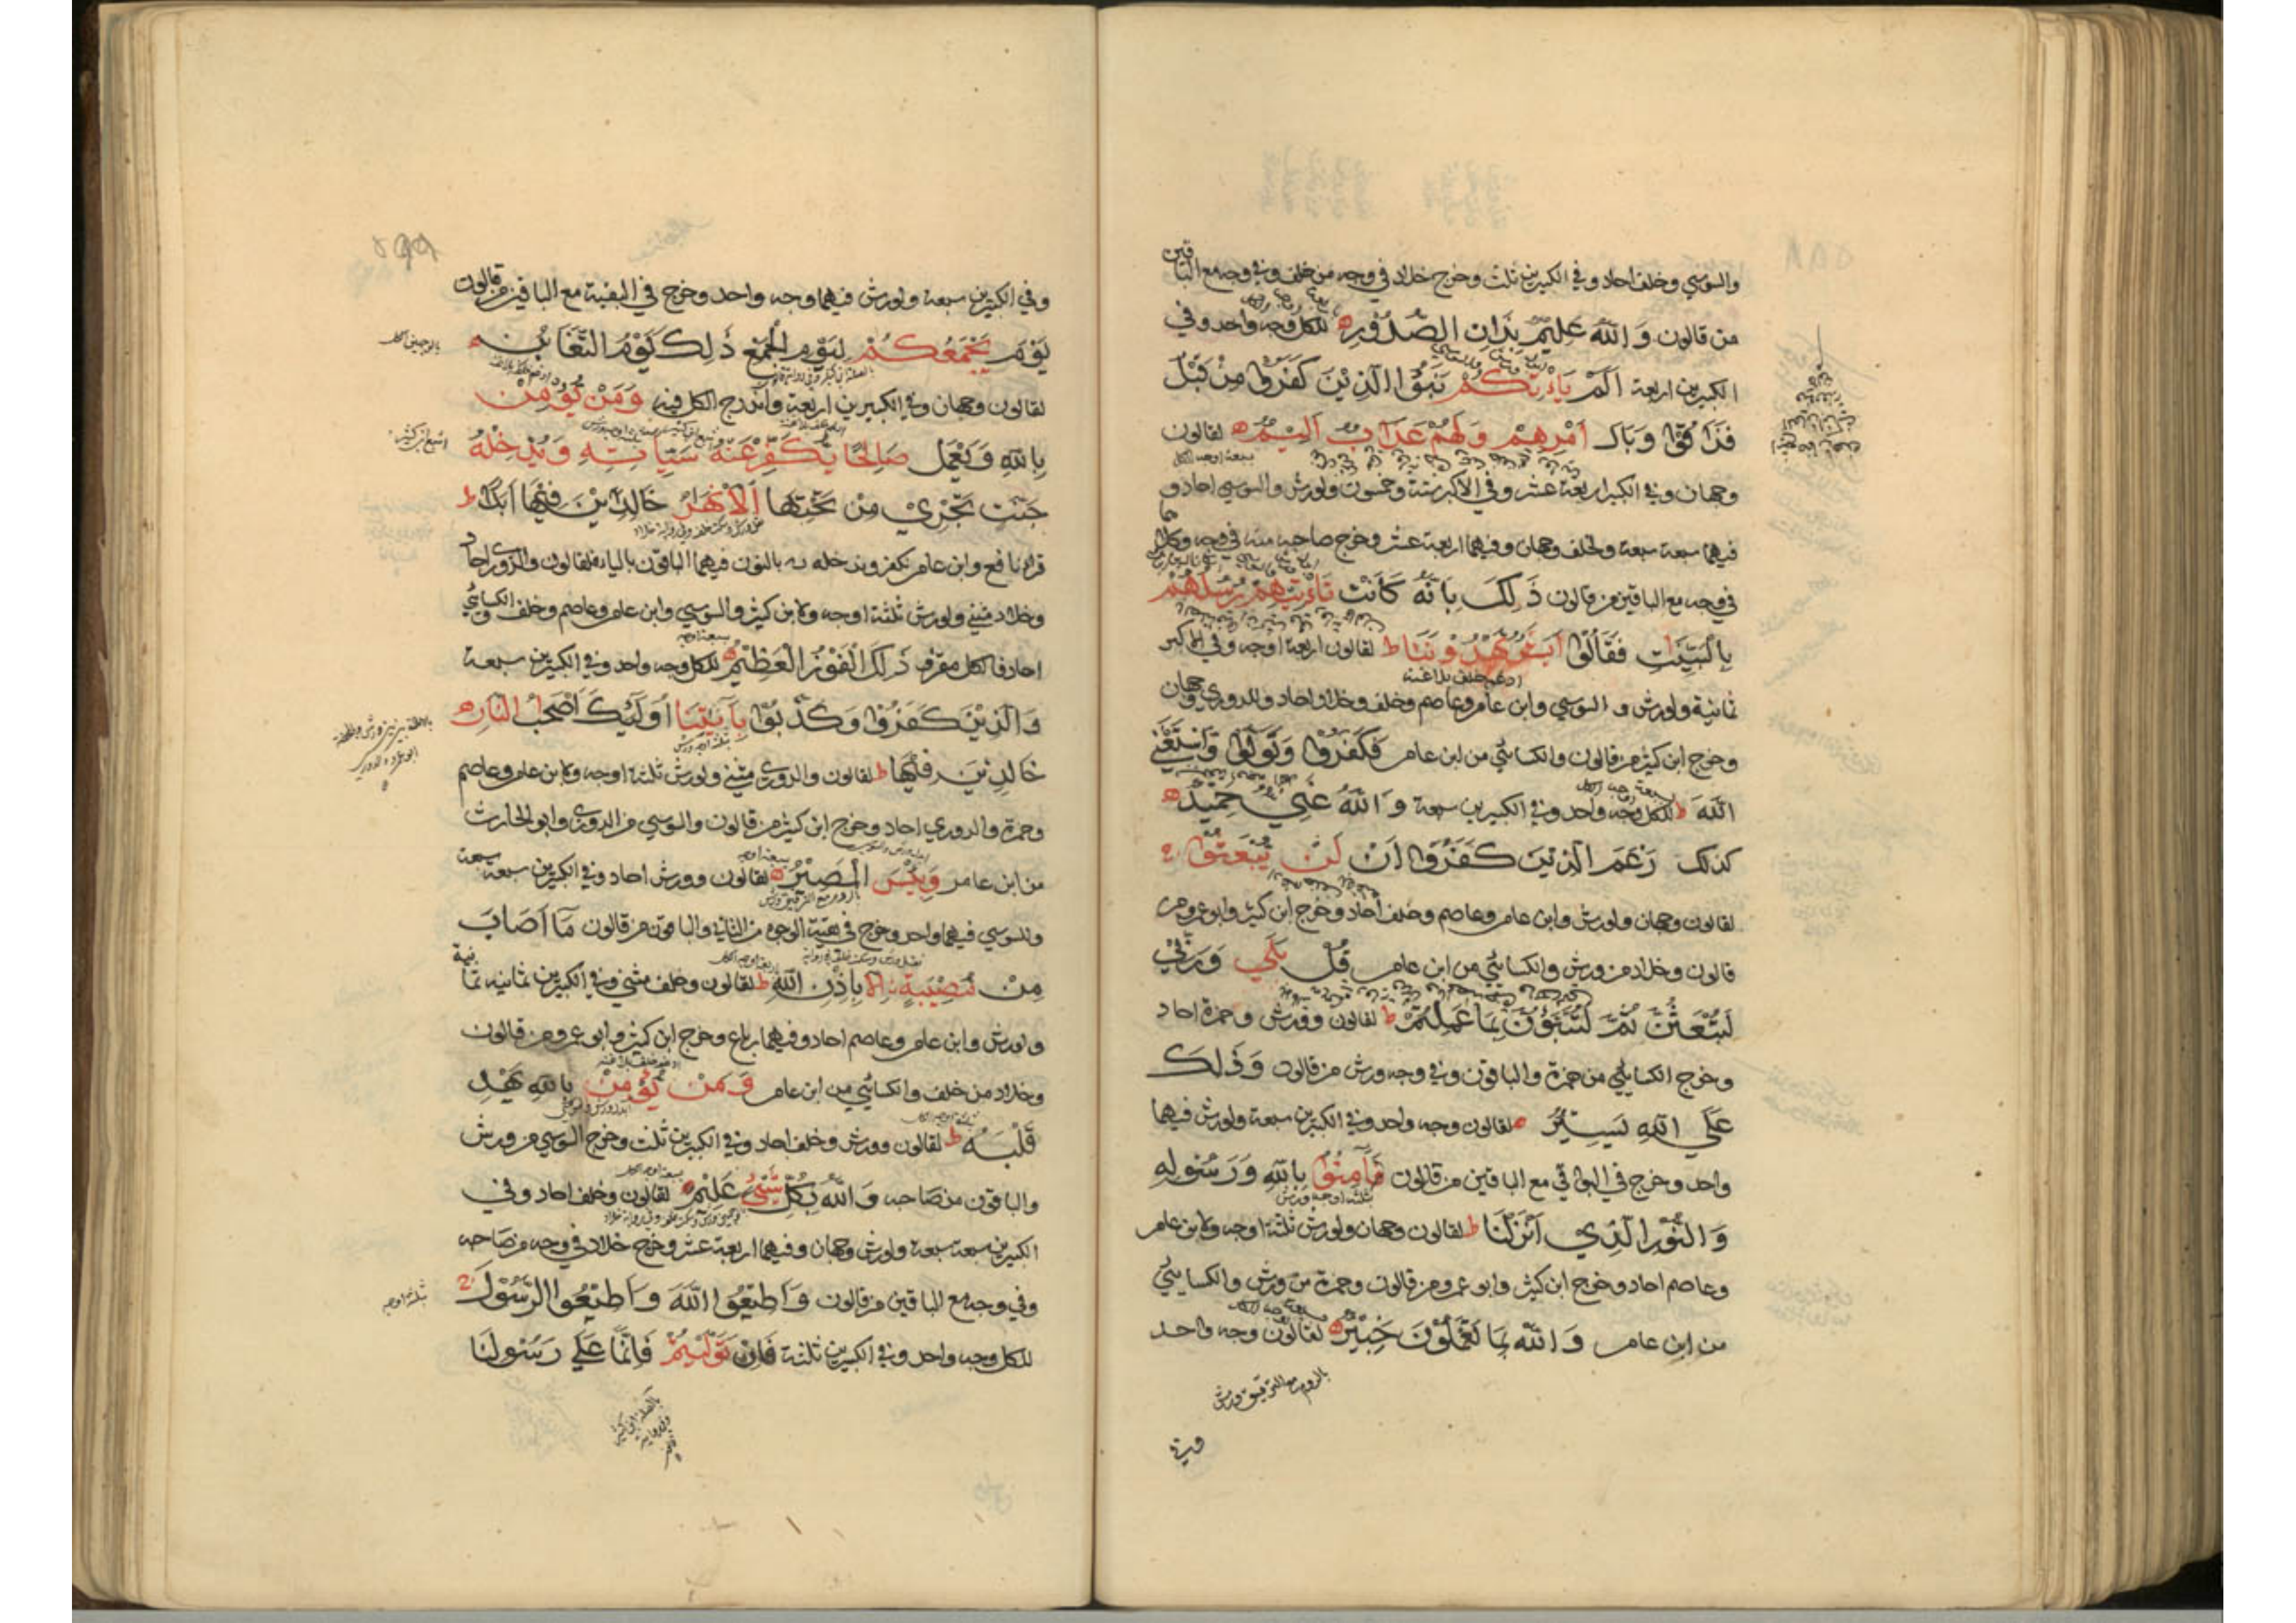 والسوسي وخلف احاد وفي الكبيرين ثلث وخرج خلاد في وجه من خلف وفي وجه مع الباقين
من قالون وَاللّٰهُ عَلِيمٌ بِذَاتِ الصُّدُورِ للكل وجه واحد وفي
الكبيرين اربعة اَلَمْ يَاْتِكُمْ نَبَؤُا الَّذِينَ كَفَرُوا مِنْ قَبْلُ
فَذَاقُوا وَبَالَ اَمْرِهِمْ وَلَهُمْ عَذَابٌ اَلِيمٌ لقالون
وجهان وفي الكبير اربعة عشر وفي الاكبر ستة وخمسون ولورش والسوسي احاد و
فيهما سبعة سبعة ولخلف وجهان وفيهما اربعة عشر وخرج صاحبه منه في وجه وكلاهما
في وجه مع الباقين من قالون ذٰلِكَ بِاَنَّهُ كَانَتْ تَاْتِيهِمْ رُسُلُهُمْ
بِالْبَيِّنٰتِ فَقَالُوا اَبَشَرٌ يَهْدُونَنَا ط لقالون اربعة اوجه وفي الاكبر
ثمانية ولورش و السوسي وابن عامر وعاصم وخلف وخلاد احاد وللدوري وجهان
وخرج ابن كثير من قالون والكسائي من ابن عامر فَكَفَرُوا وَتَوَلَّوْا وَاسْتَغْنَى
اللّٰهُ ط للكل وجه واحد وفي الكبيرين سبعة وَاللّٰهُ غَنِيٌّ حَمِيدٌ
كذلك زَعَمَ الَّذِينَ كَفَرُوا اَنْ لَنْ يُبْعَثُوا
لقالون وجهان ولورش وابن عامر وعاصم وخلف احاد وخرج ابن كثير وابو عمرو من
قالون وخلاد من ورش والكسائي من ابن عامر قُلْ بَلٰي وَرَبِّي
لَتُبْعَثُنَّ ثُمَّ لَتُنَبَّؤُنَّ بِمَا عَمِلْتُمْ ط لقالون وورش وحمزة احاد
وخرج الكسائي من حمزة والباقون وفي وجه ورش من قالون وَذٰلِكَ
عَلَي اللّٰهِ يَسِيرٌ لقالون وجه واحد وفي الكبيرين سبعة ولورش فيهما
واحد وخرج في البواقي مع الباقين من قالون فَآمِنُوا بِاللّٰهِ وَرَسُولِهِ
وَالنُّورِ الَّذِي اَنْزَلْنَا ط لقالون وجهان ولورش ثلثة اوجه ولابن عامر
وعاصم احاد وخرج ابن كثير وابو عمرو من قالون وحمزة من ورش والكسائي
من ابن عامر وَاللّٰهُ بِمَا تَعْمَلُونَ خَبِيرٌ لقالون وجه واحد
بالروم مع الترقيق ورش
وفي
٥٩٩
وفي الكبيرين سبعة ولورش فيهما وجه واحد وخرج في البقية مع الباقين من قالون
يَوْمَ يَجْمَعُكُمْ لِيَوْمِ الْجَمْعِ ذٰلِكَ يَوْمُ التَّغَابُنِ
لقالون وجهان وفي الكبيرين اربعة واندرج الكل فيه وَمَنْ يُؤْمِنْ
بِاللّٰهِ وَيَعْمَلْ صَالِحًا يُكَفِّرْ عَنْهُ سَيِّاٰتِهِ وَيُدْخِلْهُ
جَنّٰتٍ تَجْرِي مِنْ تَحْتِهَا الْاَنْهٰرُ خَالِدِينَ فِيهَا اَبَدًا ط
قراء نافع وابن عامر نكفر وندخله بالنون فيهما الباقون بالياء فلقالون والدوري احاد
وخلاد مثني ولورش ثلثة اوجه ولابن كثير والسوسي وابن عامر وعاصم وخلف والكسائي
احاد فالكل مقرف ذٰلِكَ الْفَوْزُ الْعَظِيمُ للكل وجه واحد وفي الكبيرين سبعة
وَالَّذِينَ كَفَرُوا وَكَذَّبُوا بِآيٰتِنَا اُولٰئِكَ اَصْحٰبُ النَّارِ
خَالِدِينَ فِيهَا ط لقالون والدوري مثني ولورش ثلثة اوجه ولابن عامر وعاصم
وحمزة والدوري احاد وخرج ابن كثير من قالون والسوسي من الدوري وابو الحارث
من ابن عامر وَبِئْسَ الْمَصِيرُ لقالون وورش احاد وفي الكبيرين سبعة سبعة
وللسوسي فيهما واحد وخرج في بقية الوجوه من الثاني والباقون من قالون مَا اَصَابَ
مِنْ مُصِيبَةٍ اِلَّا بِاِذْنِ اللّٰهِ ط لقالون وخلف مثني وفي الكبيرين ثمانية ثمانية
ولورش وابن عامر وعاصم احاد وفيهما رباع وخرج ابن كثير وابو عمرو من قالون
وخلاد من خلف والكسائي من ابن عامر وَمَنْ يُؤْمِنْ بِاللّٰهِ يَهْدِ
قَلْبَهُ ط لقالون وورش وخلف احاد وفي الكبيرين ثلث وخرج السوسي من ورش
والباقون من صاحبه وَاللّٰهُ بِكُلِّ شَيْءٍ عَلِيمٌ لقالون وخلف احاد وفي
الكبيرين سبعة سبعة ولورش وجهان وفيهما اربعة عشر وخرج خلاد في وجه من صاحبه
وفي وجه مع الباقين من قالون وَاَطِيعُوا اللّٰهَ وَاَطِيعُوا الرَّسُولَ
للكل وجه واحد وفي الكبيرين ثلثة فَاِنْ تَوَلَّيْتُمْ فَاِنَّمَا عَلَي رَسُولِنَا